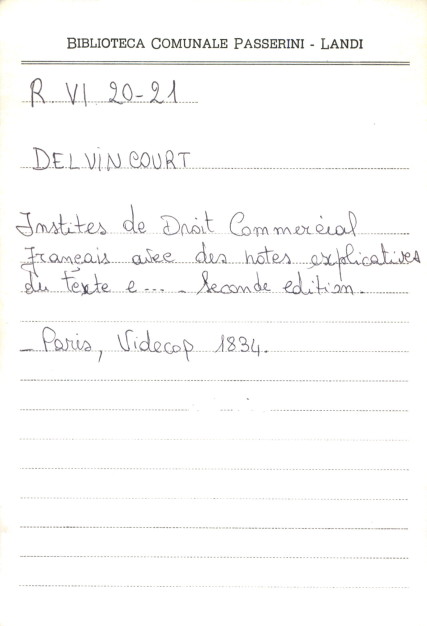 BIBLIOTECA COMUNALE PASSERINI - LANDI
R VI 20-21
DELVINCOURT
Institutes de Droit Commercial
Français avec des notes explicatives
du texte e... - Seconde edition.
- Paris, Videcop 1834.